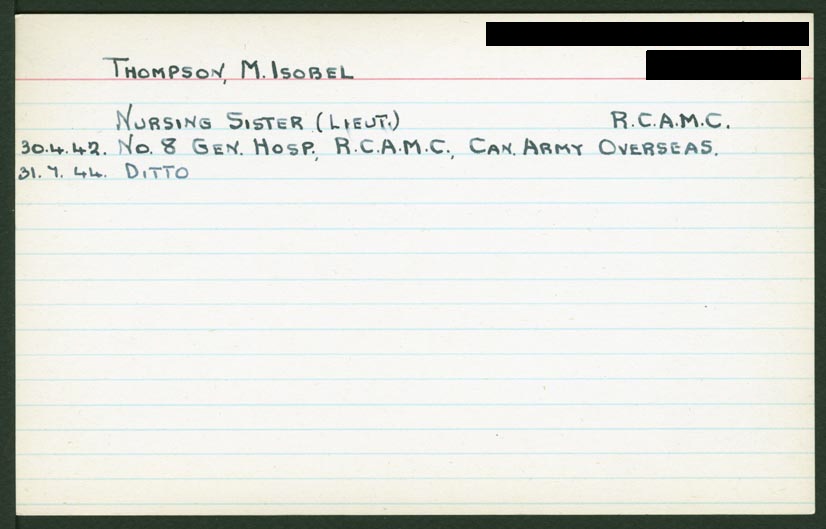 THOMPSON, M. ISOBEL
NURSING SISTER (LIEUT.) R.C.A.M.C.
30.4.42. NO. 8 GEN. HOSP., R.C.A.M.C., CAN. ARMY OVERSEAS.
31.7.44. DITTO